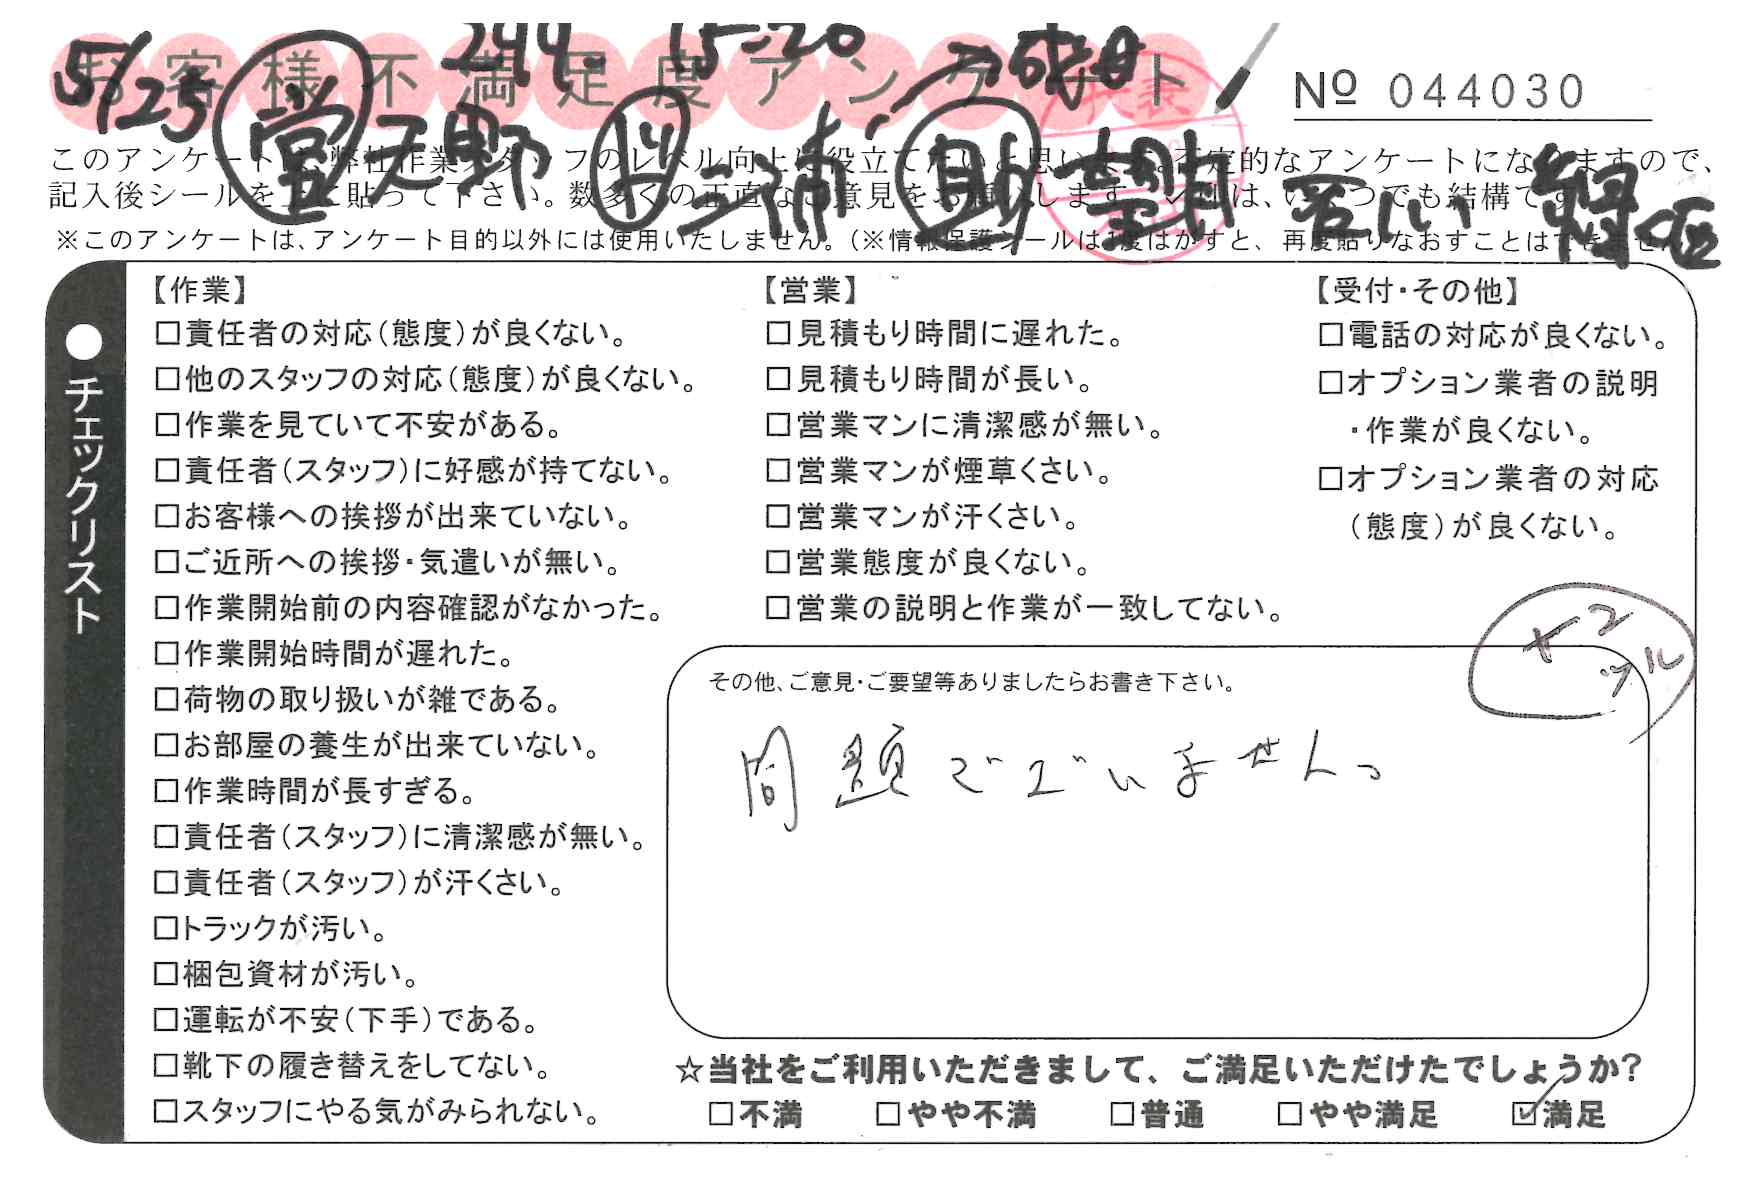 5/25
お客様不満足度アンケート
Nº 044030
営 天野 ド 三浦 助
このアンケートは、弊社作業スタッフのレベル向上に役立てたいと思います。否定的なアンケートになりますので、
記入後シールを上に貼って下さい。数多くの正直なご意見をお願いします。シールは、いくつでも結構です。
※このアンケートは、アンケート目的以外には使用いたしません。(※情報保護シールは1度はがすと、再度貼りなおすことはできません
●チェックリスト
【作業】
□責任者の対応(態度)が良くない。
□他のスタッフの対応(態度)が良くない。
□作業を見ていて不安がある。
□責任者(スタッフ)に好感が持てない。
□お客様への挨拶が出来ていない。
□ご近所への挨拶・気遣いが無い。
□作業開始前の内容確認がなかった。
□作業開始時間が遅れた。
□荷物の取り扱いが雑である。
□お部屋の養生が出来ていない。
□作業時間が長すぎる。
□責任者(スタッフ)に清潔感が無い。
□責任者(スタッフ)が汗くさい。
□トラックが汚い。
□梱包資材が汚い。
□運転が不安(下手)である。
□靴下の履き替えをしてない。
□スタッフにやる気がみられない。
【営業】
□見積もり時間に遅れた。
□見積もり時間が長い。
□営業マンに清潔感が無い。
□営業マンが煙草くさい。
□営業マンが汗くさい。
□営業態度が良くない。
□営業の説明と作業が一致してない。
【受付・その他】
□電話の対応が良くない。
□オプション業者の説明
・作業が良くない。
□オプション業者の対応
(態度)が良くない。
その他、ご意見・ご要望等ありましたらお書き下さい。
問題でございません。
☆当社をご利用いただきまして、ご満足いただけたでしょうか?
□不満 □やや不満 □普通 □やや満足 ☑満足